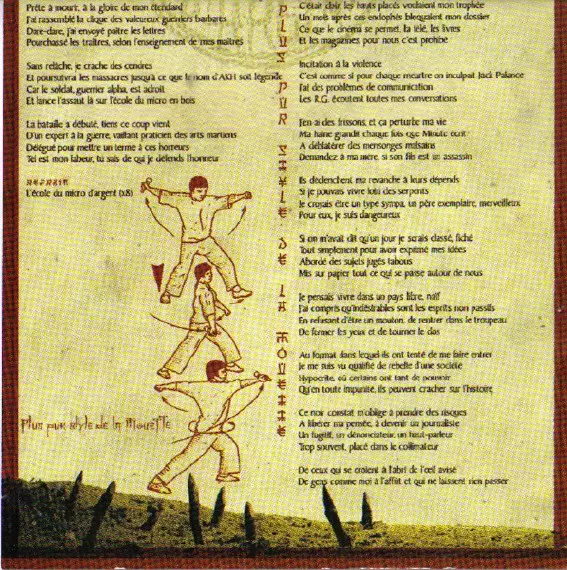 Prête à mourir, à la gloire de mon étendard
J'ai rassemblé la clique des valeureux guerriers barbares
Dare-dare, j'ai envoyé paître les lettres
Pourchassé les traîtres, selon l'enseignement de mes maîtres
Sans relâche, je crache des cendres
Et poursuivra les massacres jusqu'à ce que le nom d'AKH soit légende
Car le soldat, guerrier alpha, est adroit
Et lance l'assaut là sur l'école du micro en bois
La bataille a débuté, tiens ce coup vient
D'un expert à la guerre, vaillant praticien des arts martiens
Délégué pour mettre un terme à ces horreurs
Tel est mon labeur, tu sais de qui je défends l'honneur
REFRAIN
L'école du micro d'argent (x8)
Plus pur style de la Mouette
PLUS PUR STYLE DE LA MOUETTE
C'était clair les hauts placés voulaient mon trophée
Un mois après ces endophés bloquaient mon dossier
Ce que le cinéma se permet, la télé, les livres
Et les magazines pour nous c'est prohibé
Incitation à la violence
C'est comme si pour chaque meurtre on inculpait Jack Palance
J'ai des problèmes de communication
Les R.G. écoutent toutes mes conversations
J'en ai des frissons, et ça perturbe ma vie
Ma haine grandit chaque fois que Minute écrit
A déblatérer des mensonges malsains
Demandez à ma mère, si son fils est un assassin
Ils déclenchent ma revanche à leurs dépends
Si je pouvais vivre loin des serpents
Je croyais être un type sympa, un père exemplaire, merveilleux
Pour eux, je suis dangereux
Si on m'avait dit qu'un jour je serais classé, fiché
Tout simplement pour avoir exprimé mes idées
Abordé des sujets jugés tabous
Mis sur papier tout ce qui se passe autour de nous
Je pensais vivre dans un pays libre, naïf
J'ai compris qu'indésirables sont les esprits non passifs
En refusant d'être un mouton, de rentrer dans le troupeau
De fermer les yeux et de tourner le dos
Au format dans lequel ils ont tenté de me faire entrer
Je me suis vu qualifié de rebelle d'une société
Hypocrite, où certains ont tant de pouvoir
Qu'en toute impunité, ils peuvent cracher sur l'histoire
Ce noir constat m'oblige à prendre des risques
A libérer ma pensée, à devenir un journaliste
Un fugitif, un dénonciateur, un haut-parleur
Trop souvent, placé dans le collimateur
De ceux qui se croient à l'abri de l'œil avisé
De gens comme moi à l'affût et qui ne laissent rien passer